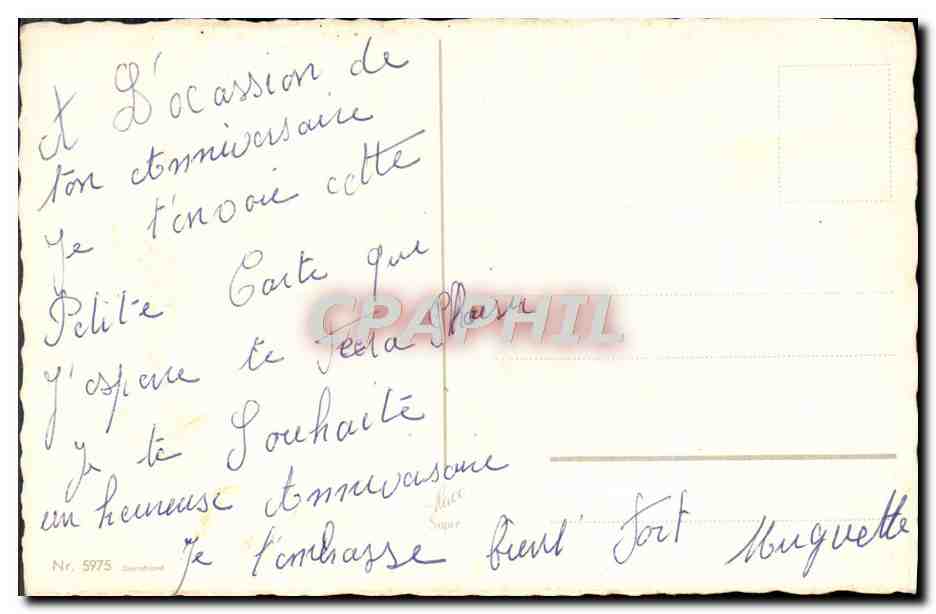 A L'ocassion de
ton Anniversaire
Je t'envoie cette
Petite Carte que
j'espere te Fera Plaisir
Je te Souhaite
un heureuse Anniversaire
Je t'embrasse bient Fort Muguette
CPAPHIL
Nr. 5975